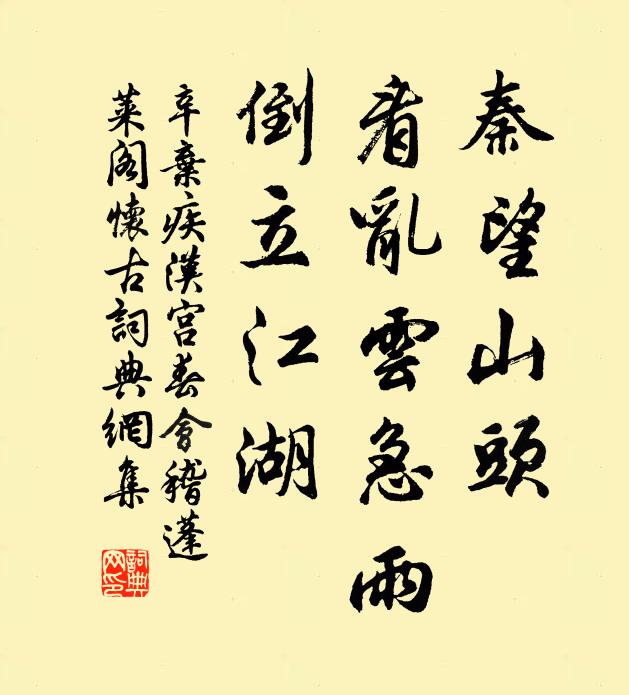 秦望山頭
看亂雲急雨
倒立江湖
辛棄疾漢宮春會稽蓬
萊閣懷古詞典網集
詞典
网印